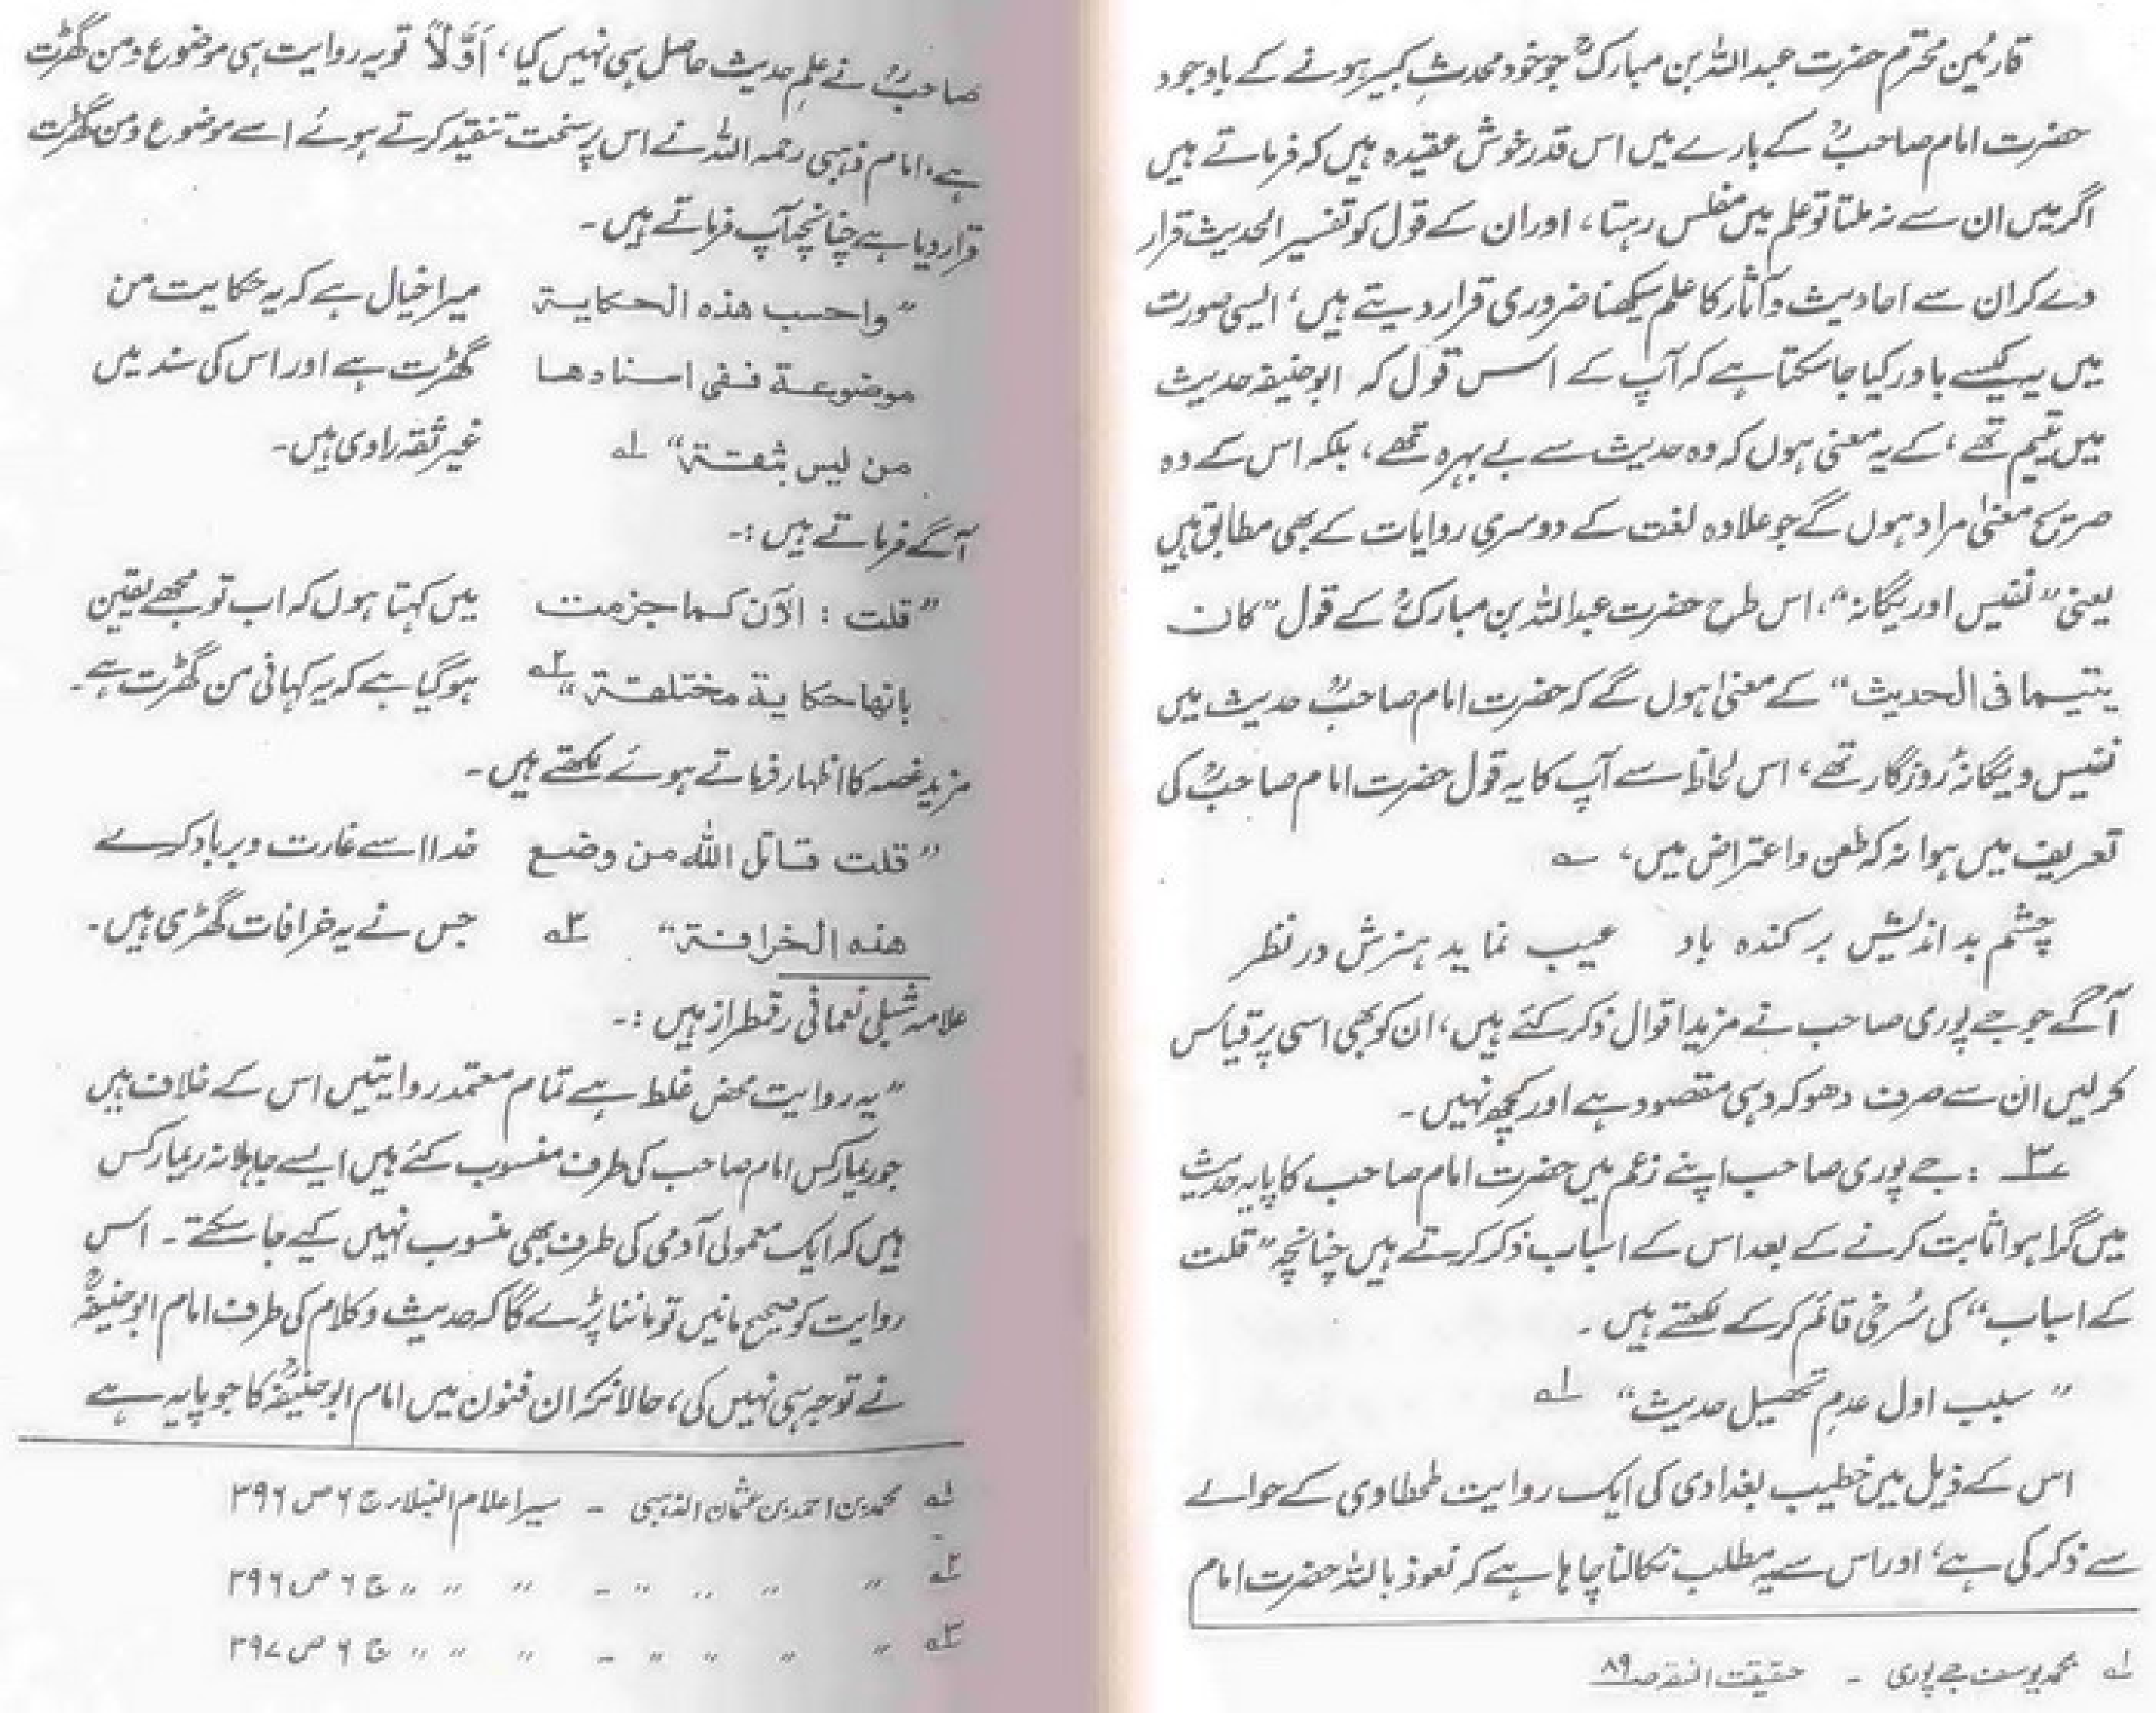 قارئین محترم حضرت عبداللہ بن مبارکؒ جو خود محدثِ کبیر ہونے کے باوجود
حضرت امام صاحبؒ کے بارے میں اس قدر خوش عقیدہ ہیں کہ فرماتے ہیں
اگر میں ان سے نہ ملتا تو علم میں مفلس رہتا، اور ان کے قول کو تفسیر الحدیث قرار
دے کر ان سے احادیث و آثار کا علم سیکھنا ضروری قرار دیتے ہیں، ایسی صورت
میں یہ کیسے باور کیا جا سکتا ہے کہ آپ کے اس قول کہ ابو حنیفہ حدیث
میں یتیم تھے، کے یہ معنی ہوں کہ وہ حدیث سے بے بہرہ تھے، بلکہ اس کے وہ
صریح معنیٰ مراد ہوں گے جو علاوہ لغت کے دوسری روایات کے بھی مطابق ہیں
یعنی "نفیس اور یگانہ"، اس طرح حضرت عبداللہ بن مبارکؒ کے قول "کان
یتیما فی الحدیث" کے معنیٰ ہوں گے کہ حضرت امام صاحبؒ حدیث میں
نفیس و یگانۂ روزگار تھے، اس لحاظ سے آپ کا یہ قول حضرت امام صاحبؒ کی
تعریف میں ہوا نہ کہ طعن و اعتراض میں، ؎
چشم بد اندیش بر کندہ باد عیب نماید ہنرش در نظر
آگے جو جے پوری صاحب نے مزید اقوال ذکر کئے ہیں، ان کو بھی اسی پر قیاس
کر لیں ان سے صرف دھوکہ دہی مقصود ہے اور کچھ نہیں۔
۳؎ : جے پوری صاحب اپنے زعم میں حضرت امام صاحب کا پایہ حدیث
میں گرا ہوا ثابت کرنے کے بعد اس کے اسباب ذکر کرتے ہیں چنانچہ "قلت
کے اسباب" کی سُرخی قائم کر کے لکھتے ہیں۔
"سبب اول عدمِ تحصیل حدیث" ۱؎
اس کے ذیل میں خطیب بغدادی کی ایک روایت طحطاوی کے حوالے
سے ذکر کی ہے، اور اس سے یہ مطلب نکالنا چاہا ہے کہ نعوذ باللہ حضرت امام
۱؎ محمد یوسف جے پوری - حقیقت الفقہ صـ ۸۹
صاحبؒ نے علمِ حدیث حاصل ہی نہیں کیا، اَوَّلاً تو یہ روایت ہی موضوع و من گھڑت
ہے، امام ذہبی رحمہ اللہ نے اس پر سخت تنقید کرتے ہوئے اسے موضوع و من گھڑت
قرار دیا ہے چنانچہ آپ فرماتے ہیں۔
"واحسب هذه الحكاية میرا خیال ہے کہ یہ حکایت من
موضوعة ففی اسنادها گھڑت ہے اور اس کی سند میں
من لیس بثقة" ۱؎ غیر ثقہ راوی ہیں۔
آگے فرماتے ہیں :-
"قلت : الآن کما جزمت میں کہتا ہوں کہ اب تو مجھے یقین
بانها حکایة مختلقة" ۲؎ ہو گیا ہے کہ یہ کہانی من گھڑت ہے۔
مزید غصہ کا اظہار فرماتے ہوئے لکھتے ہیں۔
"قلت قاتل الله من وضع خدا اسے غارت و برباد کرے
هذه الخرافة" ۳؎ جس نے یہ خرافات گھڑی ہیں۔
علامہ شبلی نعمانی رقمطراز ہیں :-
"یہ روایت محض غلط ہے تمام معتمد روایتیں اس کے خلاف ہیں
جو ریمارکس امام صاحب کی طرف منسوب کئے ہیں ایسے جاہلانہ ریمارکس
ہیں کہ ایک معمولی آدمی کی طرف بھی منسوب نہیں کیے جا سکتے۔ اس
روایت کو صحیح مانیں تو ماننا پڑے گا کہ حدیث و کلام کی طرف امام ابو حنیفہؒ
نے توجہ ہی نہیں کی، حالانکہ ان فنون میں امام ابو حنیفہؒ کا جو پایہ ہے
۱؎ محمد بن احمد بن عثمان الذہبی - سیر اعلام النبلاء ج ۶ ص ۳۹۶
۲؎ " " " " - " " " ج ۶ ص ۳۹۶
۳؎ " " " " - " " " ج ۶ ص ۳۹۷